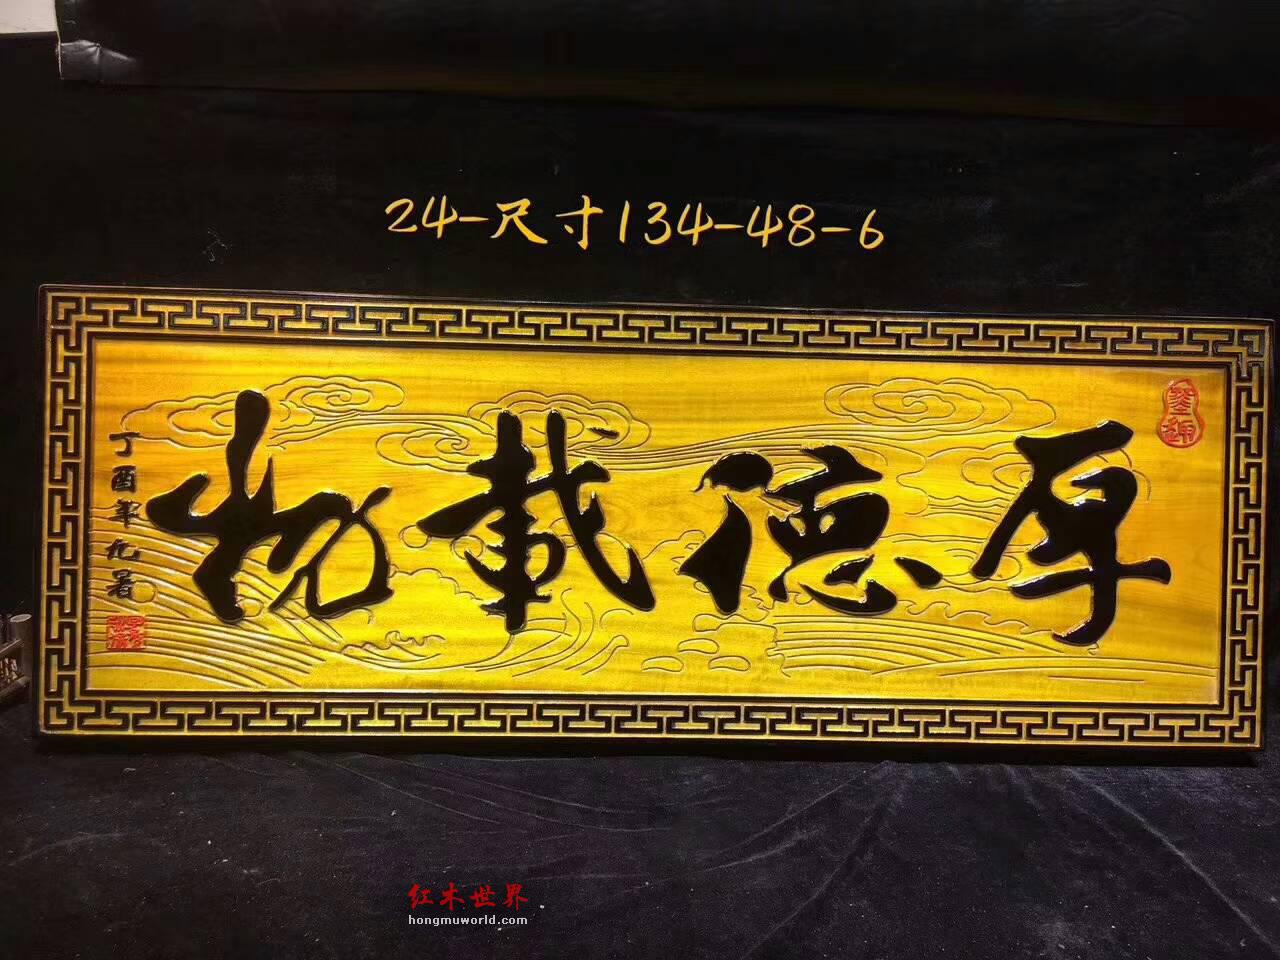 24-尺寸134-48-6
厚德载物
丁酉年九君
红木世界
hongmuworld.com